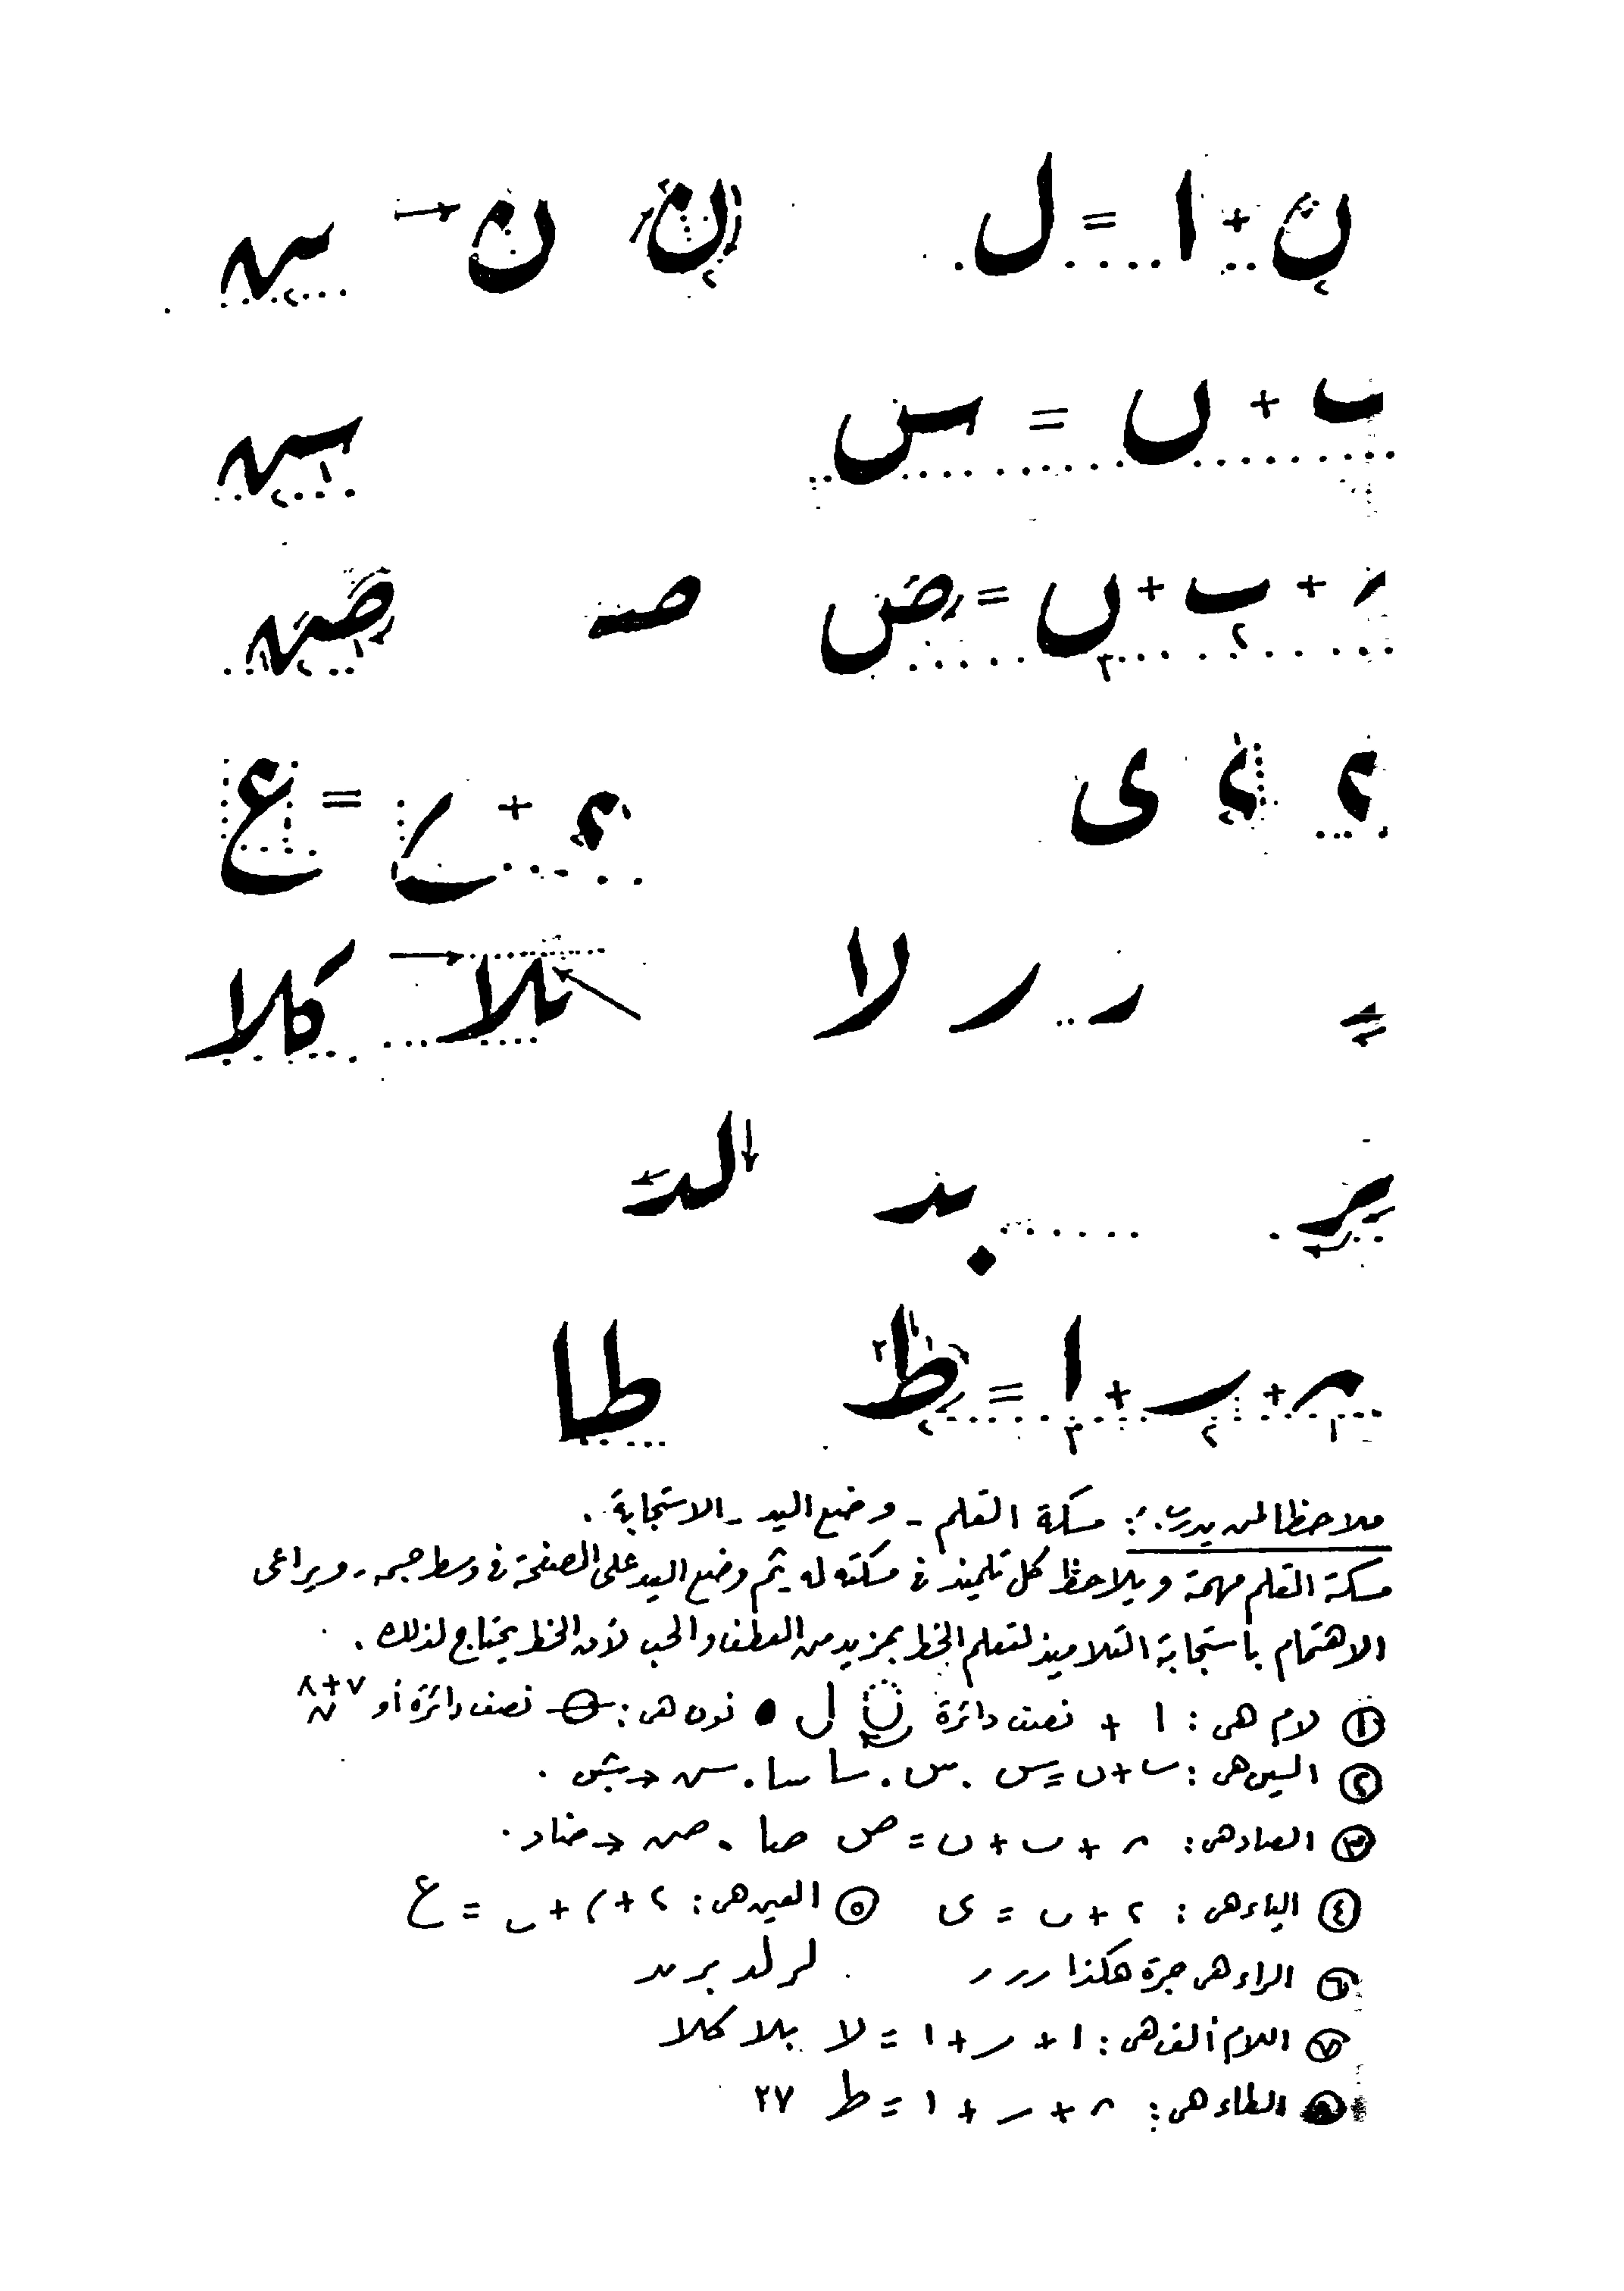 ن + ا = ل ن ن س
ب + ں = س س
ر + ب + ں = ص صـ ص
ء ء ى ء + ح = ع
ر ر لا بلا كلا
بر بد لد
ا = ط طا
ملاحظا لمن يدرب: مسكة القلم - وضع اليد - الاستجابة.
مسكة القلم مهمة ويلاحظ كل تلميذ فى مسكته له ثم وضع اليد على الصفحة فى وسط جسمه - ويراعى
الاهتمام باستجابة التلاميذ لتعلم الخط بمزيد من العطف والحب لأن الخط يحتاج لذلك.
١ لام هى: ا + نصف دائرة ن ل • نون هى: نصف دائرة أو ٧+٨
٢ السين هى: ٮ+ں=س . س . سا سا . س
٣ الصاد هى: + ٮ + ں = ص صا . ص → ضاد.
٤ الياء هى: ء + ں = ى ٥ العين هى: ء + = ع
٦ الراء هى جرة هكذا ر ر ر لر لد بر بد
٧ اللام ألف هى: ا + ر + ا = لا بلا كلا
٨ الطاء هى: + ر + ا = ط ٢٧